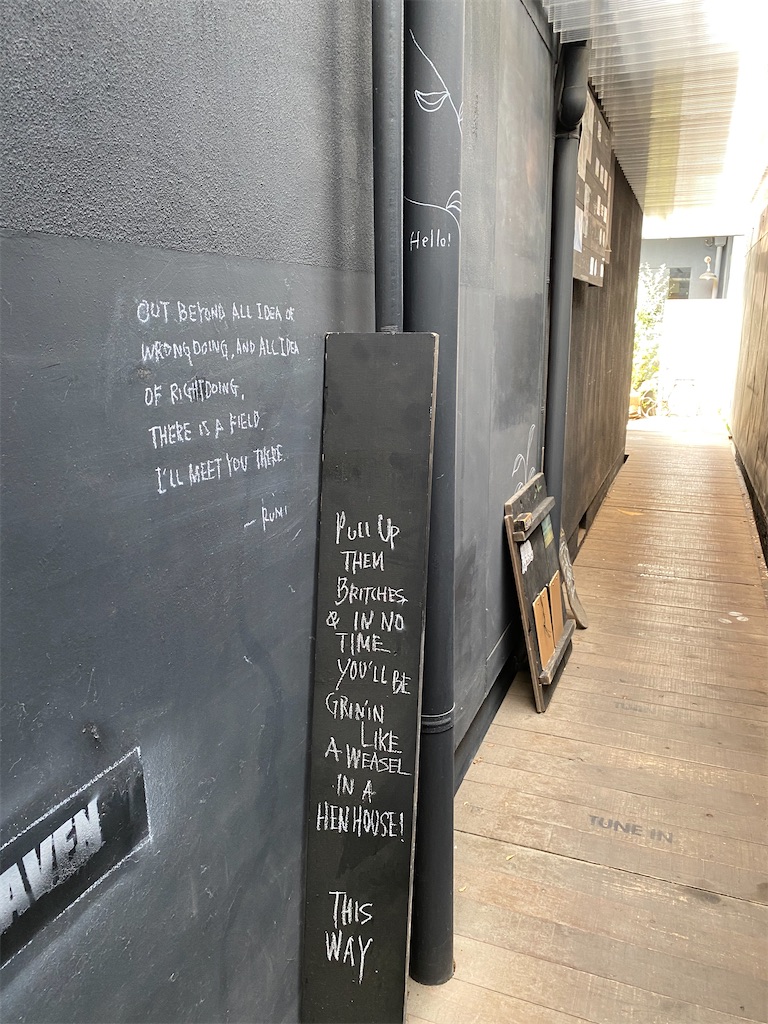 Hello!
OUT BEYOND ALL IDEA OF
WRONGDOING, AND ALL IDEA
OF RIGHTDOING,
THERE IS A FIELD.
I'LL MEET YOU THERE.
~ RUMI
PULL UP
THEM
BRITCHES
& IN NO
TIME
YOU'LL BE
GRIN'IN
LIKE
A WEASEL
IN A
HEN HOUSE!
THIS
WAY
AVEN
TUNE IN